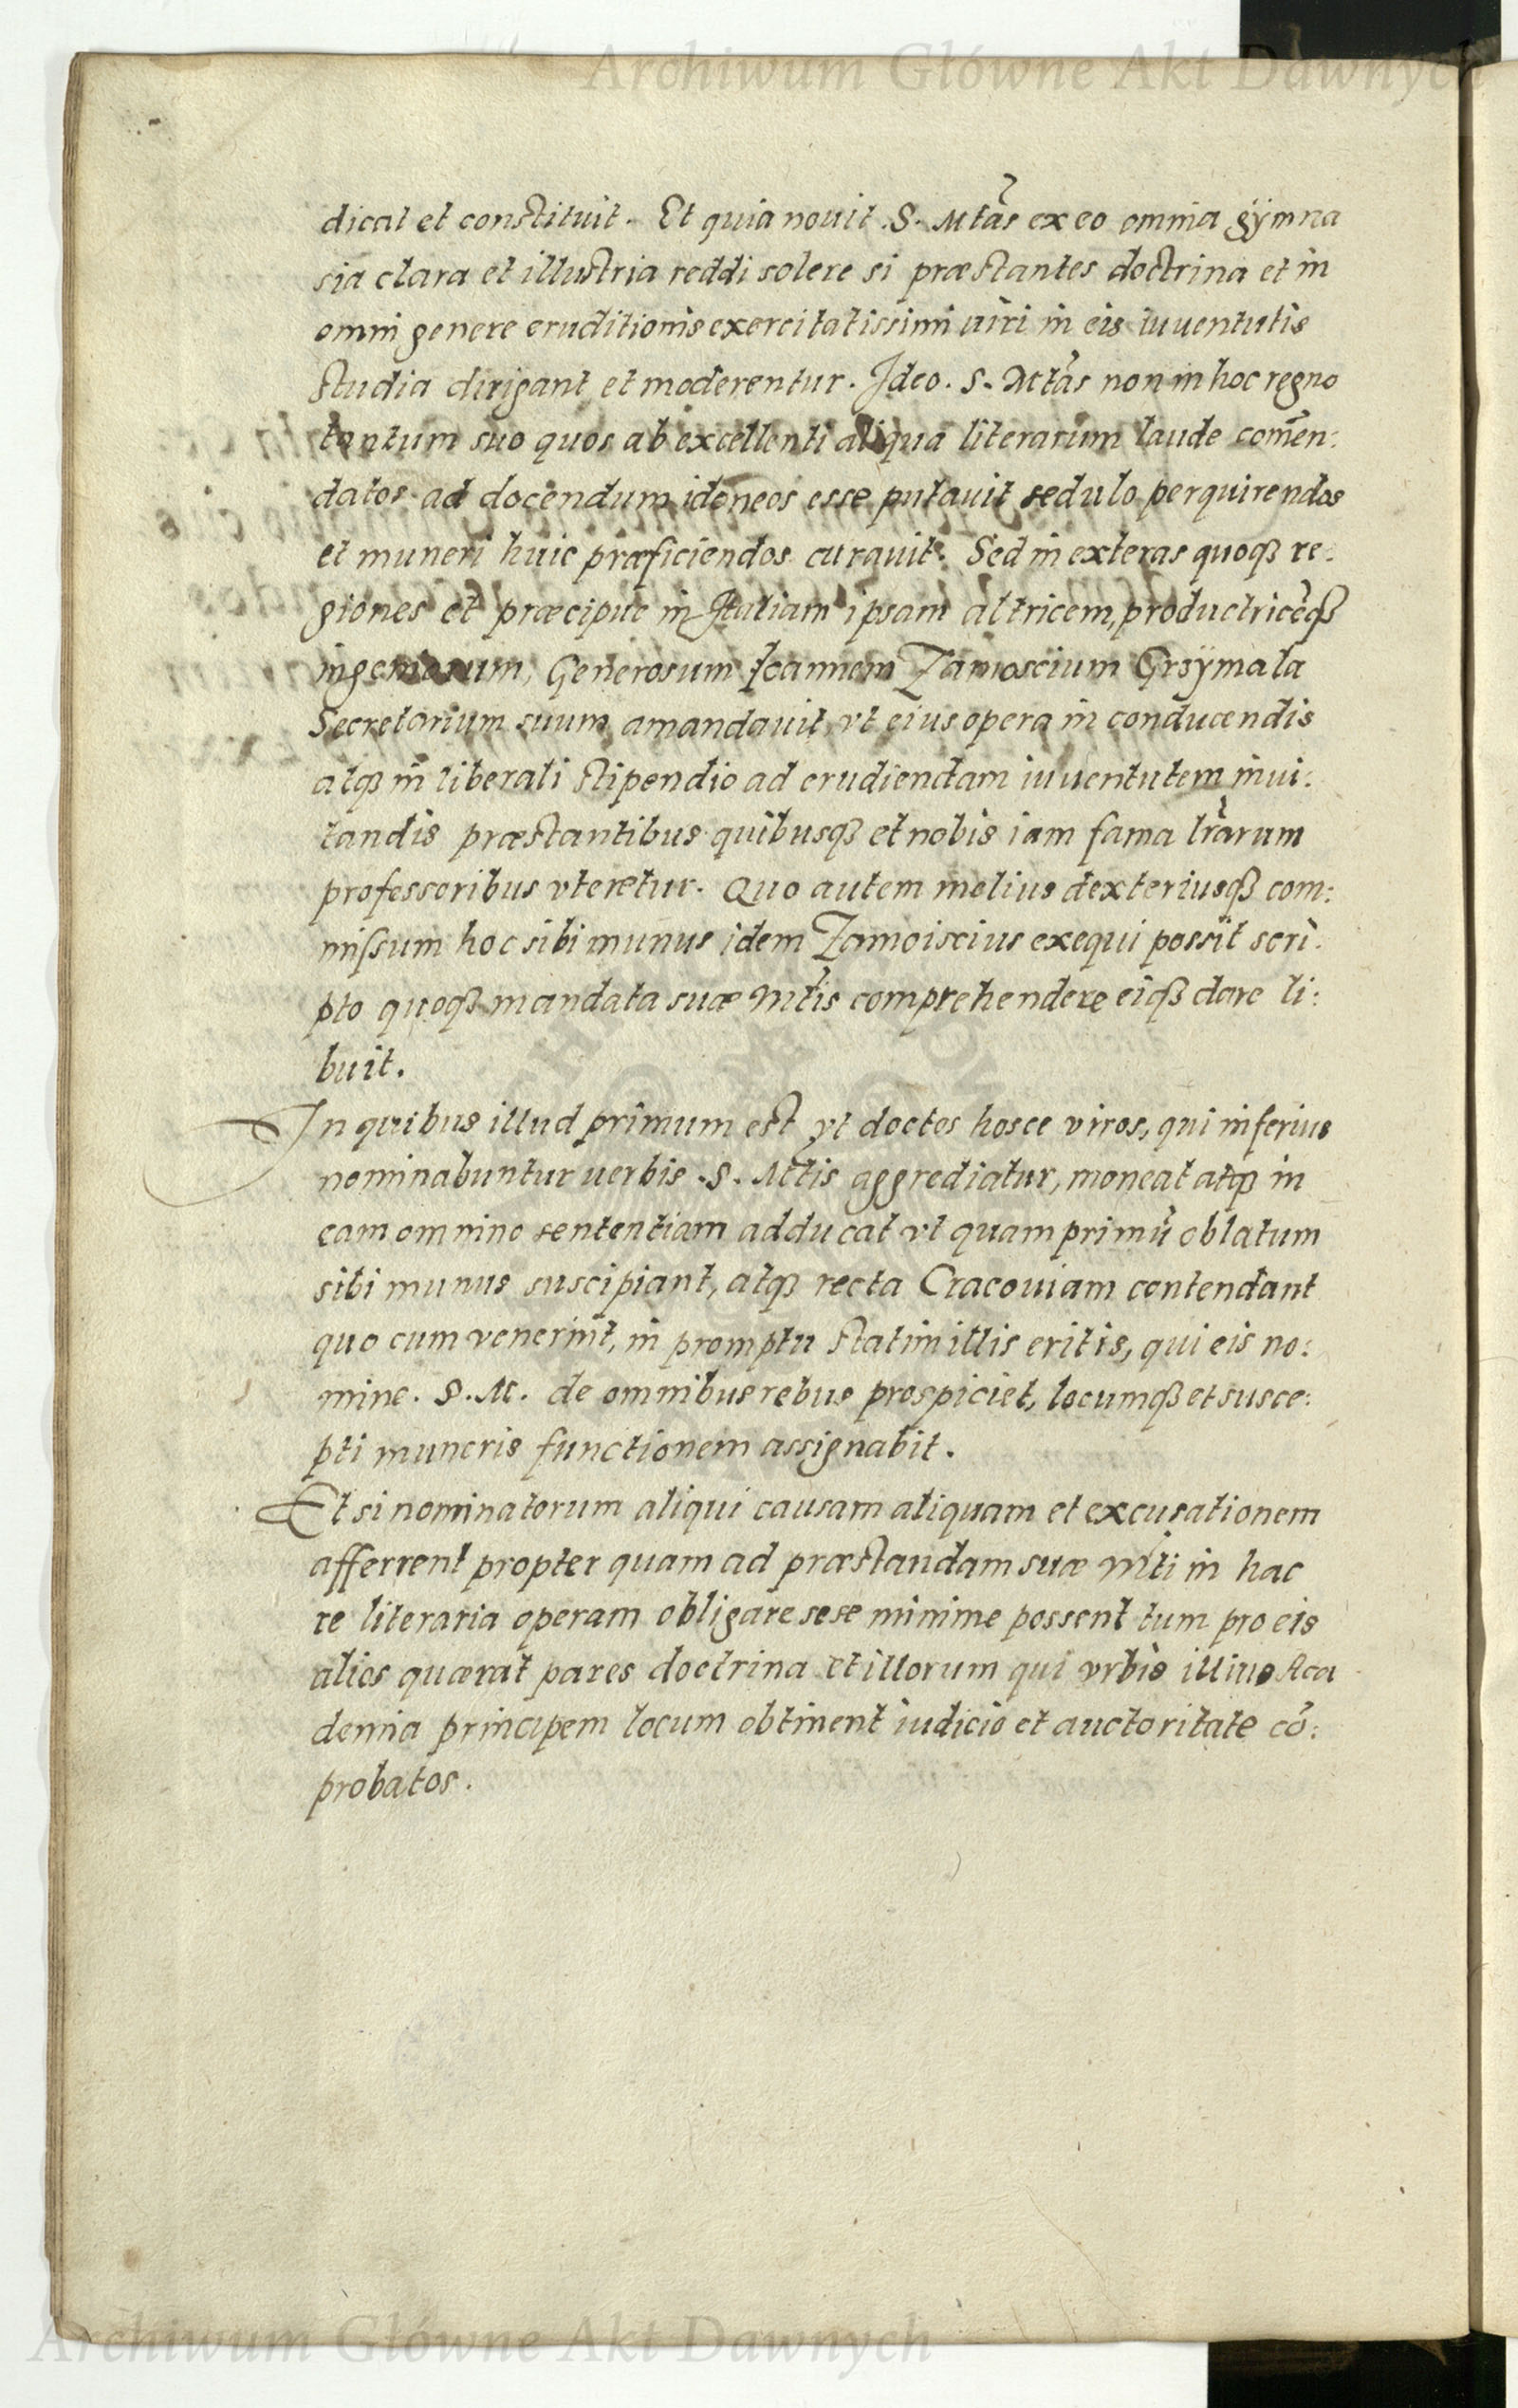 Archiwum Główne Akt Dawnych
dicat et constituit. Et quia nouit .S. Mtãs ex eo omnia gÿmna
sia clara et illustria reddi solere si præstantes doctrina et in
omni genere eruditionis exercitatissimi uiri in eis iuuentutis
studia dirigant et moderentur. Ideo. S. Mtãs non in hoc regno
tantum suo quos ab excellenti aliqua literarum laude comẽn:
datos ad docendum idoneos esse putauit sedulo perquirendos
et muneri huic præficiendos curauit. Sed in exteras quoqꝫ re:
giones et præcipue in Italiam ipsam altricem, productricẽqꝫ
ingeniorum, Generosum Ioannem Zamoscium Grsÿmala
Secretarium suum amandauit, vt eius opera in conducendis
atqꝫ in liberali stipendio ad erudiendam iuuentutem inui:
tandis præstantibus quibusqꝫ et nobis iam fama lrãrum
professoribus vteretur. Quo autem melius dexteriusqꝫ com:
missum hoc sibi munus idem Zamoiscius exequi possit scri:
pto quoqꝫ mandata suæ Mtĩs comprehendere eiqꝫ dare li:
buit.
In quibus illud primum est vt doctos hosce viros, qui inferius
nominabuntur uerbis .S. Mtis aggrediatur, moneat atqꝫ in
eam omnino sententiam adducat vt quam primũ oblatum
sibi munus suscipiant, atqꝫ recta Cracouiam contendant
quo cum venerint, in promptu statim illis erit is, qui eis no:
mine. S. M. de omnibus rebus prospiciet, locumqꝫ et susce:
pti muneris functionem assignabit.
Et si nominatorum aliqui causam aliquam et excusationem
afferrent propter quam ad præstandam suæ Mti in hac
re literaria operam obligare sese minime possent tum pro eis
alios quærat pares doctrina et illorum qui vrbis illius Aca
demia principem locum obtinent iudicio et auctoritate cõ:
probatos.
Archiwum Główne Akt Dawnych